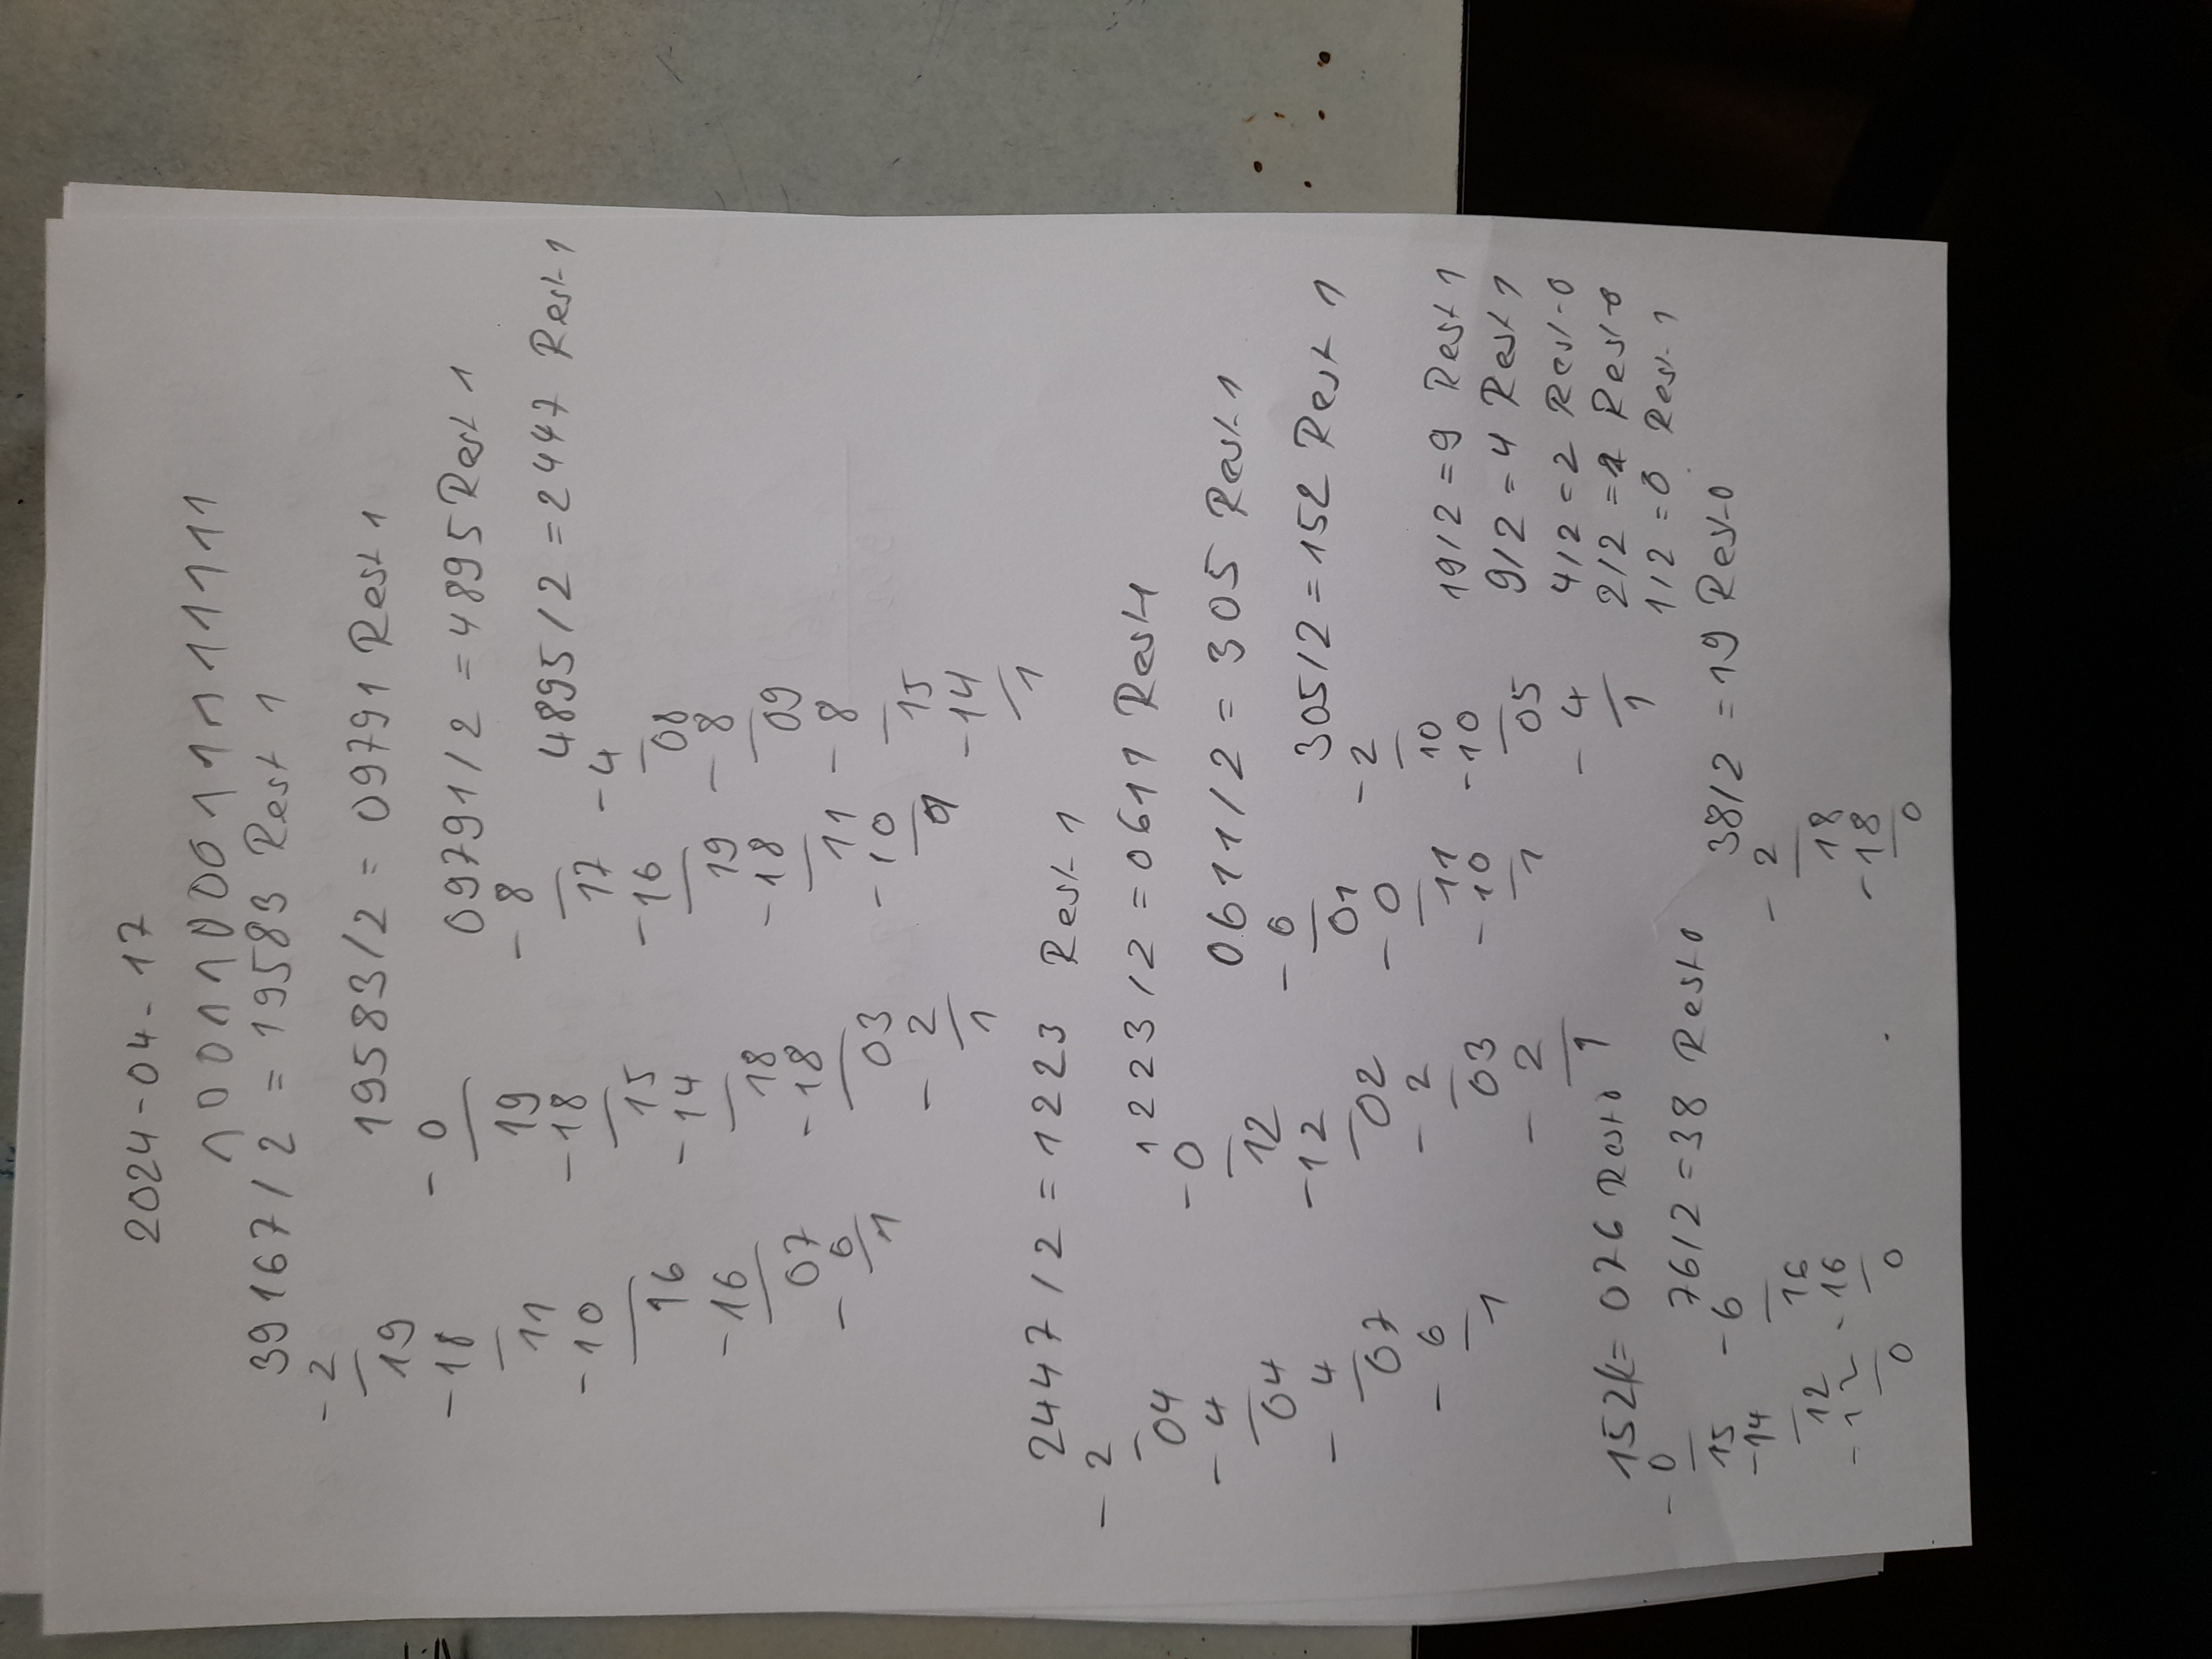 2024-04-17
1001100011111111
39167/2 = 19583 Rest 1
-2
19
-18
11
-10
16
-16
07
-6
1
19583/2 = 09791 Rest 1
-0
19
-18
15
-14
18
-18
03
-2
1
09791/2 = 4895 Rest 1
-8
17
-16
19
-18
11
-10
1
4895/2 = 2447 Rest 1
-4
08
-8
09
-8
15
-14
1
2447/2 = 1223 Rest 1
-2
04
-4
04
-4
07
-6
1
1223/2 = 0611 Rest 1
-0
12
-12
02
-2
03
-2
1
0611/2 = 305 Rest 1
-6
01
-0
11
-10
1
305/2 = 152 Rest 1
-2
10
-10
05
-4
1
19/2 = 9 Rest 1
9/2 = 4 Rest 1
4/2 = 2 Rest 0
2/2 = 1 Rest 0
1/2 = 0 Rest 1
152/2 = 076 Rest 0
-0
15
-14
12
-12
0
76/2 = 38 Rest 0
-6
16
-16
0
38/2 = 19 Rest 0
-2
18
-18
0